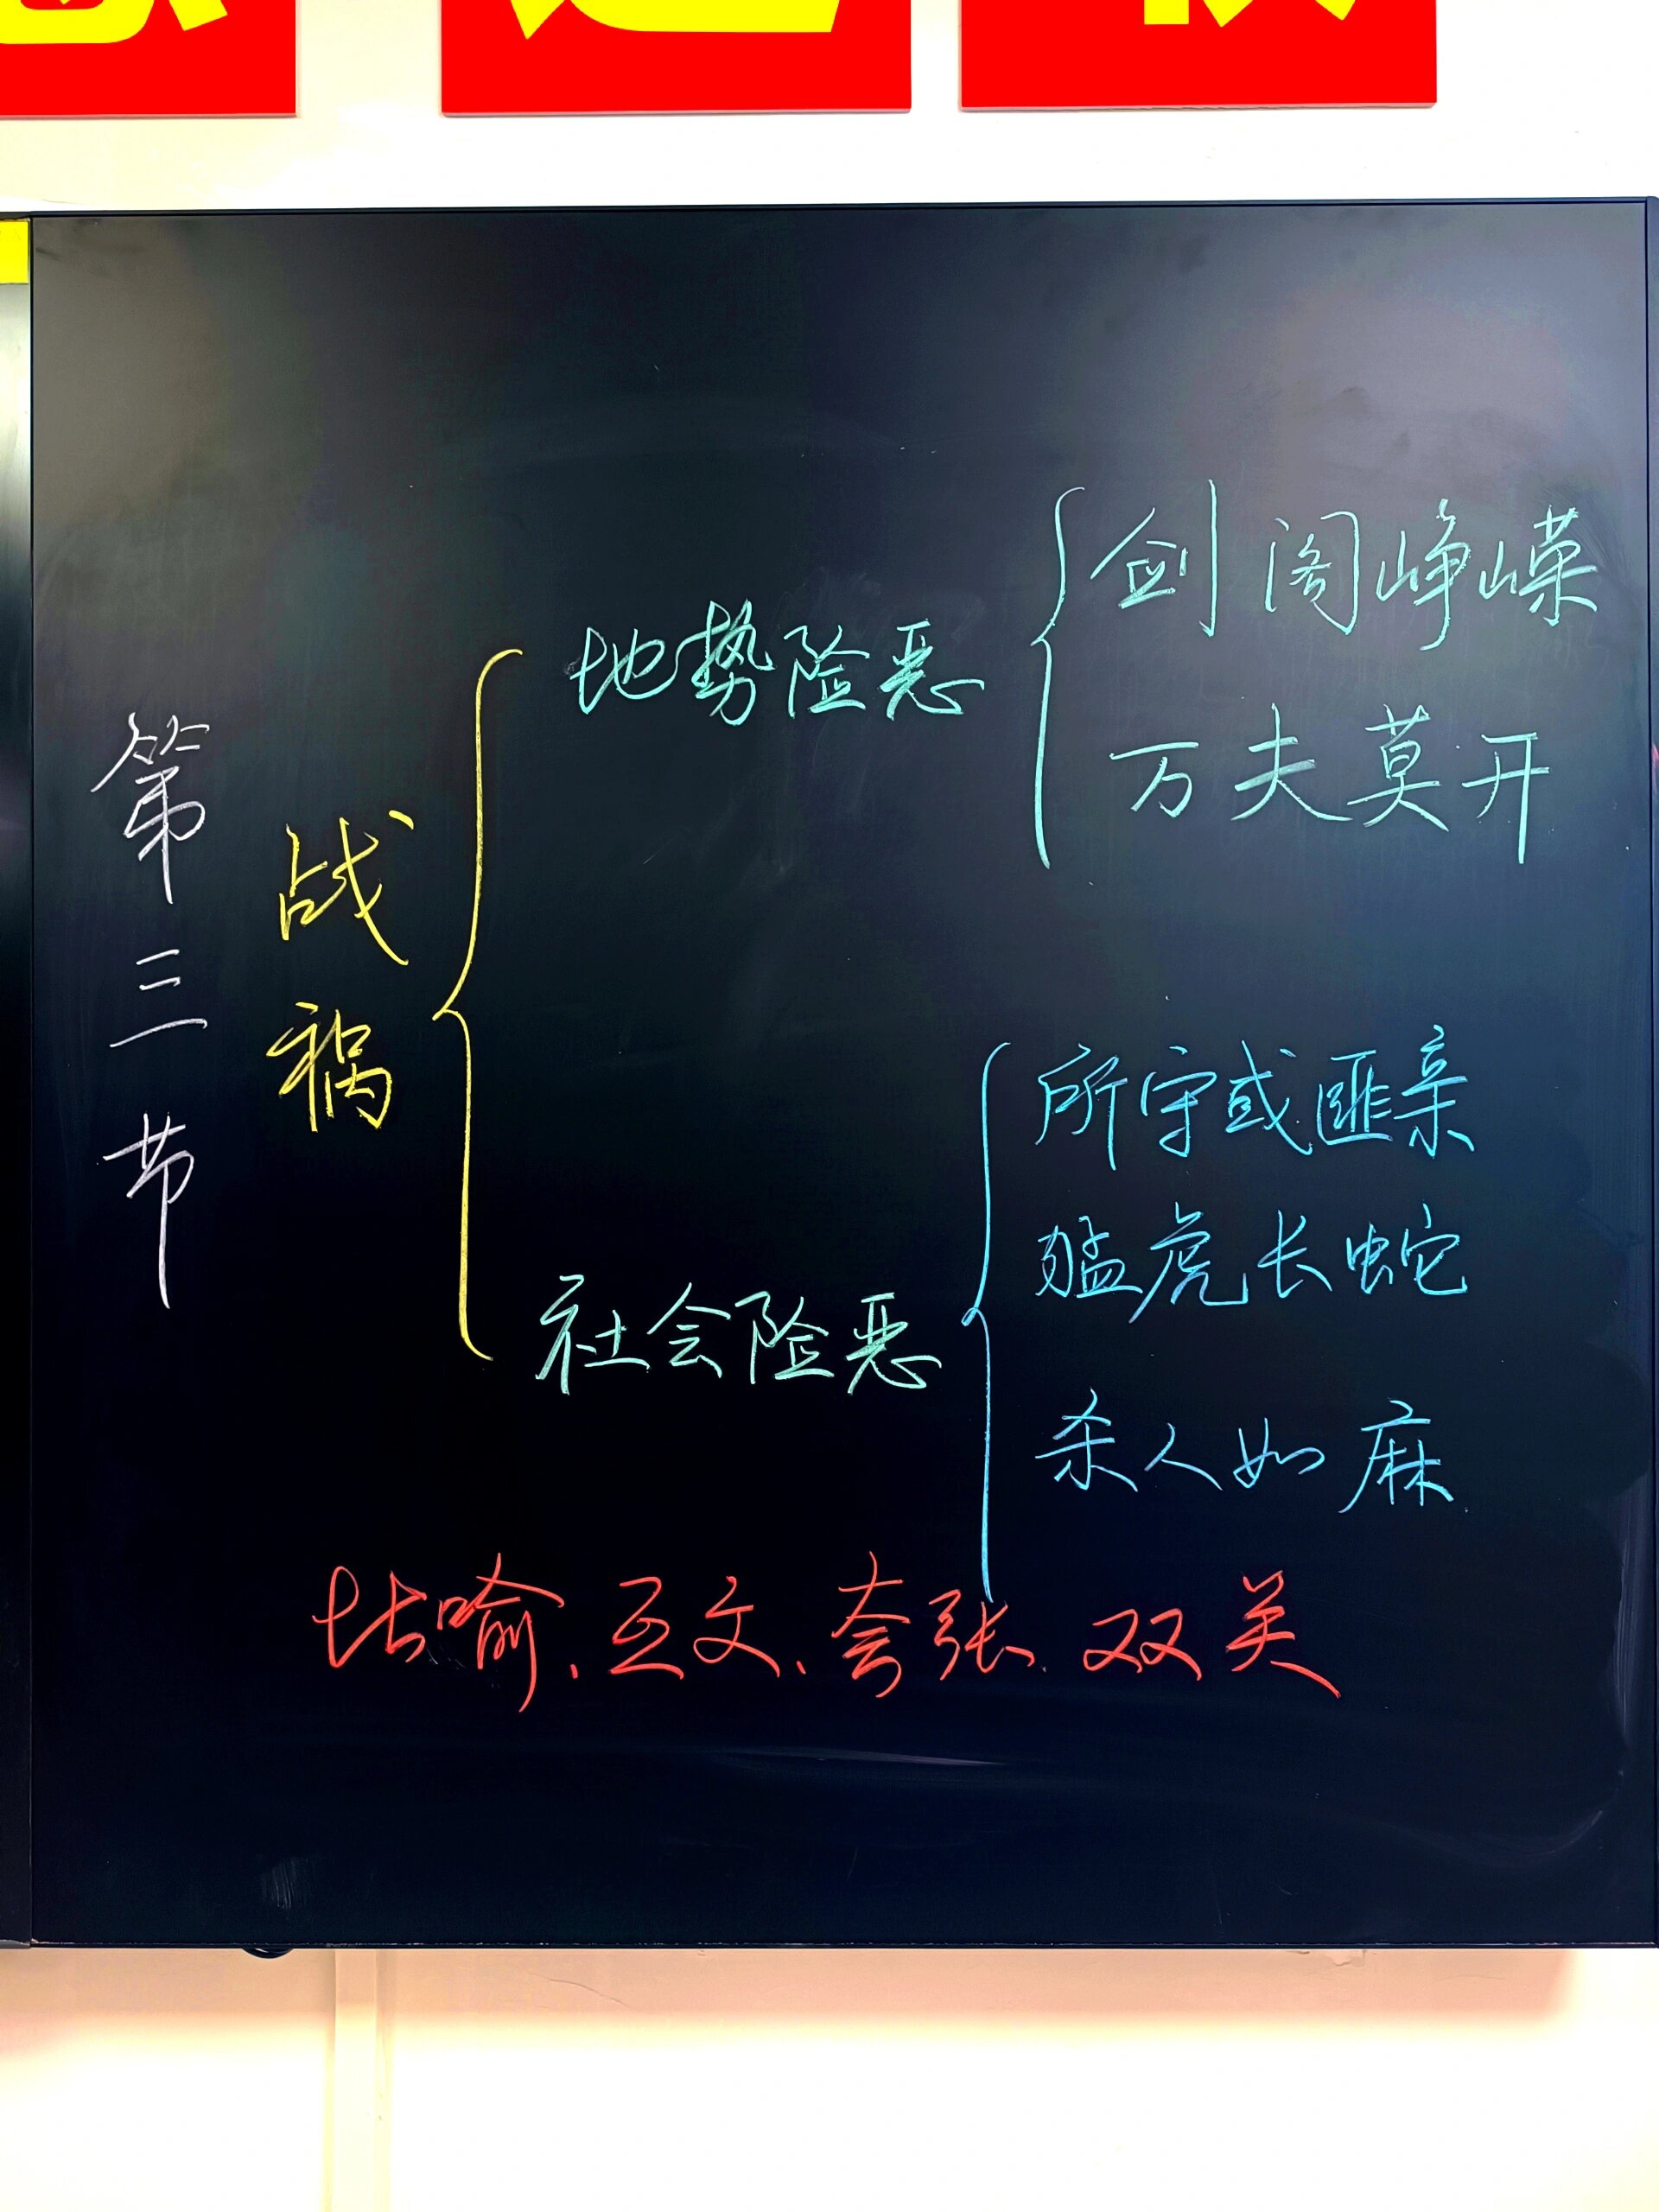 第三节
战祸
地势险恶
剑阁峥嵘
万夫莫开
社会险恶
所守或匪亲
猛虎长蛇
杀人如麻
比喻、互文、夸张、双关